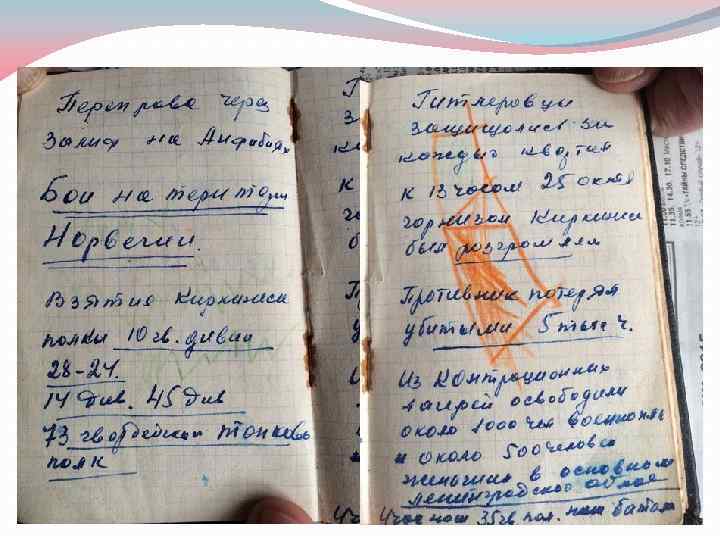 Переправа через
Залив на Амфибиях
Бои на територии
Норвегии.
Взятие Киркинеси
полки 10 гв. дивии
28-24.
14 Див. 45 Див
73 гвордейский танковы
полк
Гитлеровци
защищолись за
каждыг квортал
к 13 часом 25 октя
горнизон Киркинеси
был розгромлен
Противник потерял
убитыми 5 тыся ч.
Из контрационных
лагерей освободили
около 1000 чел военнопле
и около 500 человек
женьшин в основном
ленинградской облас
Учас наш 35 гв пол. наш батал